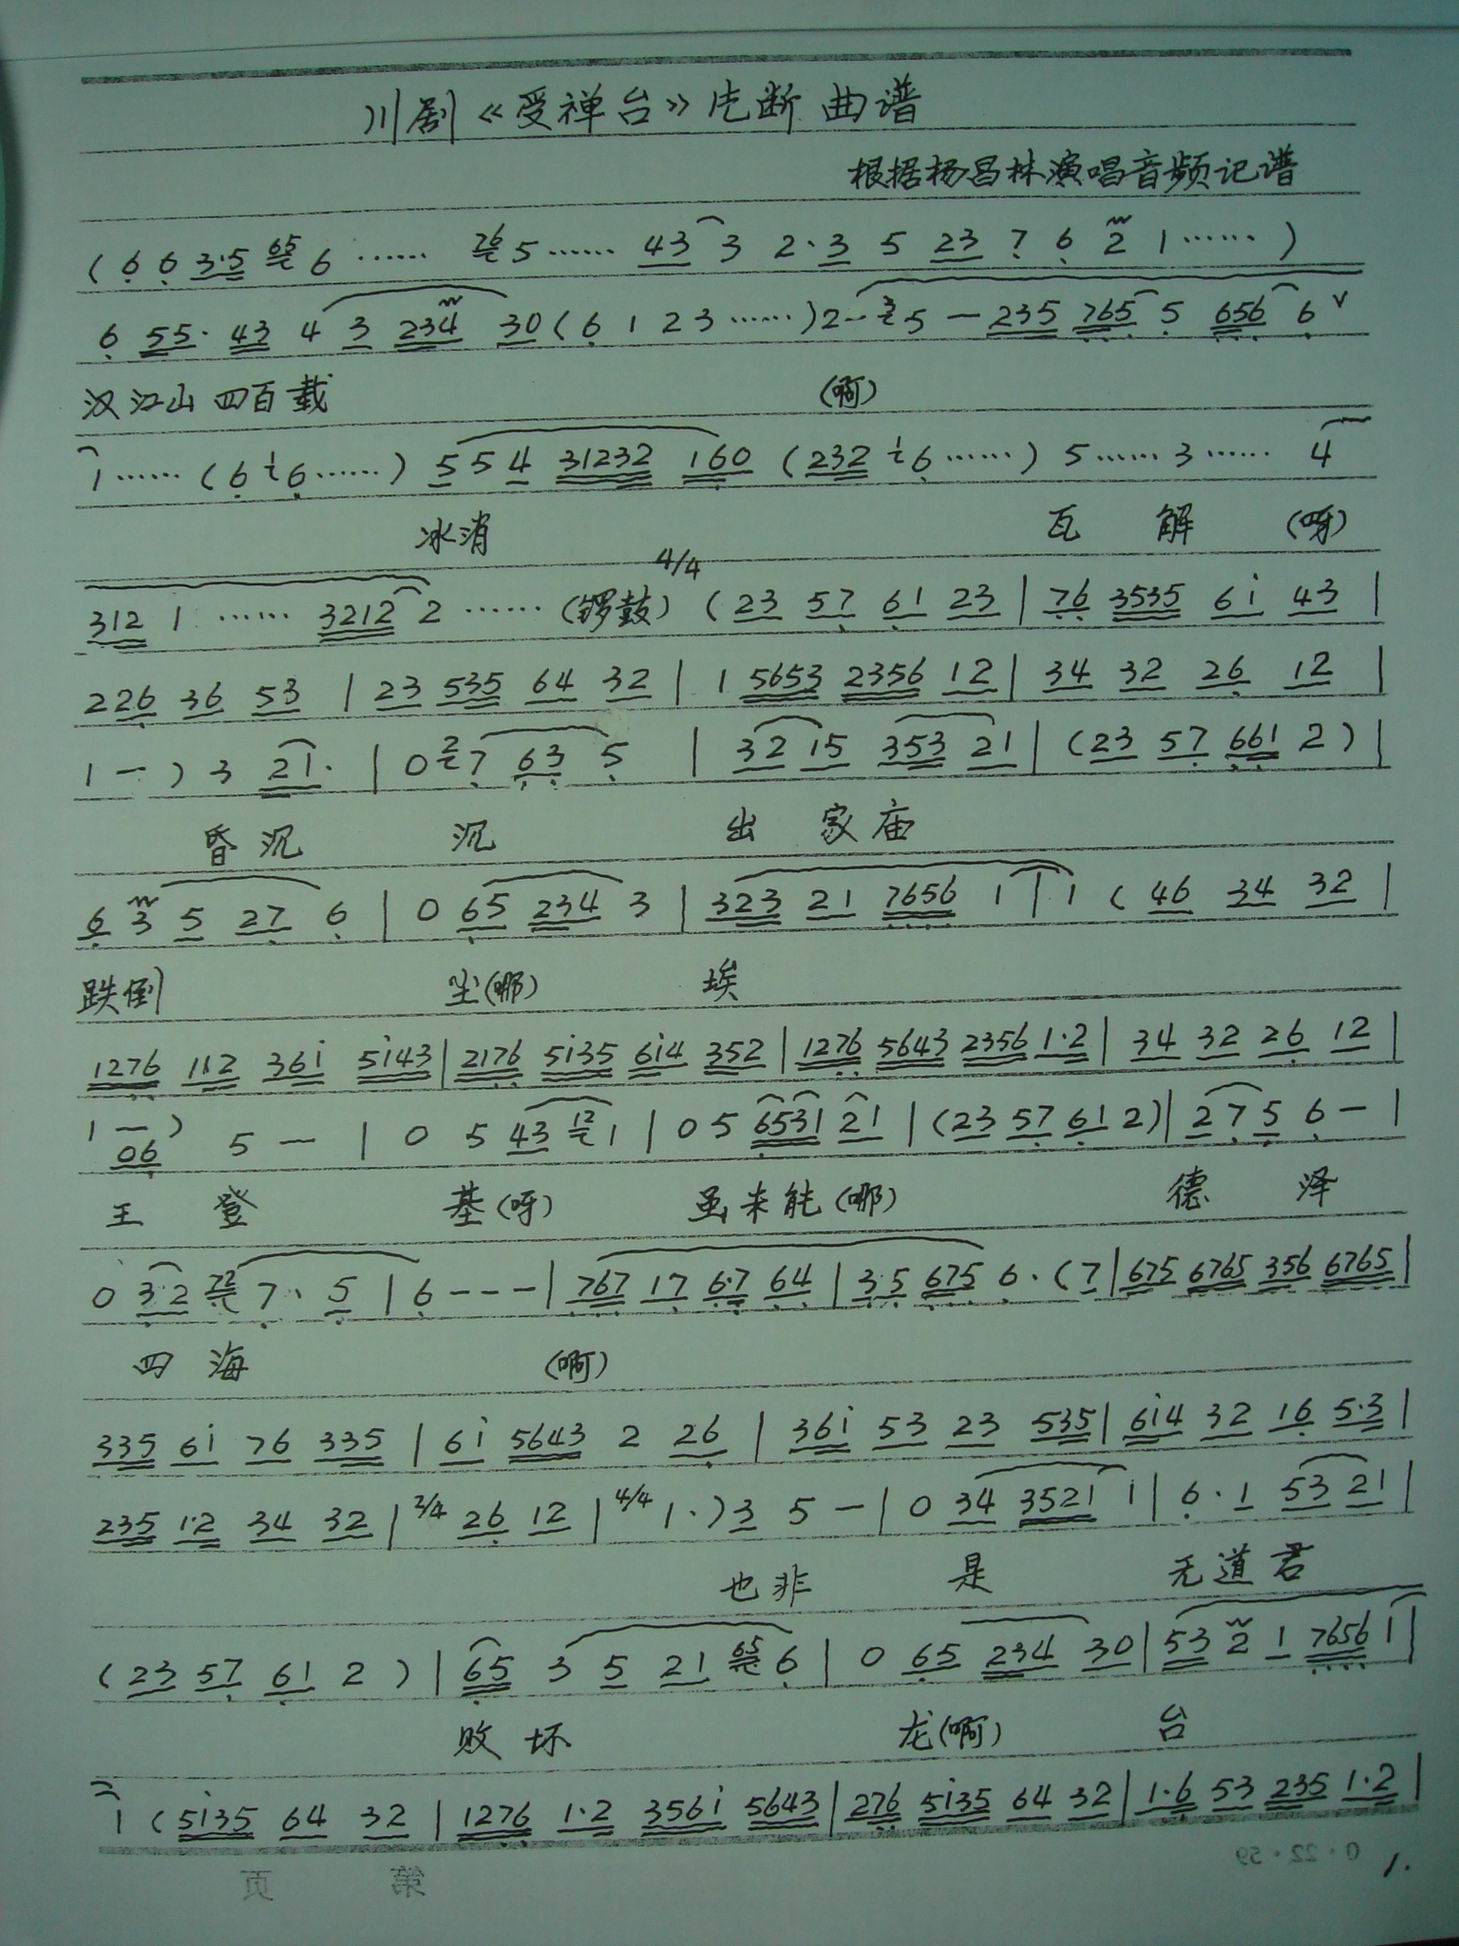 川剧《受禅台》片断 曲谱
根据杨昌林演唱音频记谱
( 6 6 3·5 65 6 ······ 76 5 ······ 43 3 2·3 5 23 7 6 2 1 ······ )
6 55· 43 4 3 234 30 ( 6 1 2 3 ······ ) 2 - 3 5 — 235 765 5 656 6 ∨
汉江山 四百载 (啊)
1 ······ ( 6 i 6 ······ ) 5 5 4 31232 160 ( 232 i 6 ······ ) 5 ······ 3 ······ 4
冰消 瓦 解 (呀)
4/4
312 1 ······ 3212 2 ······ (锣鼓) ( 23 57 61 23 | 76 3535 6i 43 |
226 36 53 | 23 535 64 32 | 1 5653 2356 12 | 34 32 26 12 |
1 — ) 3 21· | 0 2 7 63 5 | 32 15 353 21 | ( 23 57 661 2 ) |
昏沉 沉 出 家庙
6 3 5 27 6 | 0 65 234 3 | 323 21 7656 1 | 1 ( 46 34 32 |
跌倒 尘(哪) 埃
1276 112 36i 5i43 | 2176 5i35 6i4 352 | 1276 5643 2356 1·2 | 34 32 26 12 |
1 — ) 5 — | 0 5 43 12 1 | 0 5 6531 21 | ( 23 57 61 2 ) | 2 7 5 6 — |
06
王 登 基(呀) 虽未能(哪) 德 泽
0 3·2 72 7· 5 | 6 - - - | 767 17 6·7 64 | 3·5 675 6· ( 7 | 675 6765 356 6765 |
四 海 (啊)
335 6i 76 335 | 6i 5643 2 26 | 36i 53 23 535 | 6i4 32 16 5·3 |
235 1·2 34 32 | 2/4 26 12 | 4/4 1· ) 3 5 — | 0 34 3521 1 | 6· 1 53 21 |
也非 是 无道君
( 23 57 61 2 ) | 65 3 5 21 65 6 | 0 65 234 30 | 53 2 1 7656 1 |
败坏 龙(啊) 台
1 ( 5i35 64 32 | 1276 1·2 356i 5643 | 276 5i35 64 32 | 1·6 53 235 1·2 |
第 页
0·22·59
1.